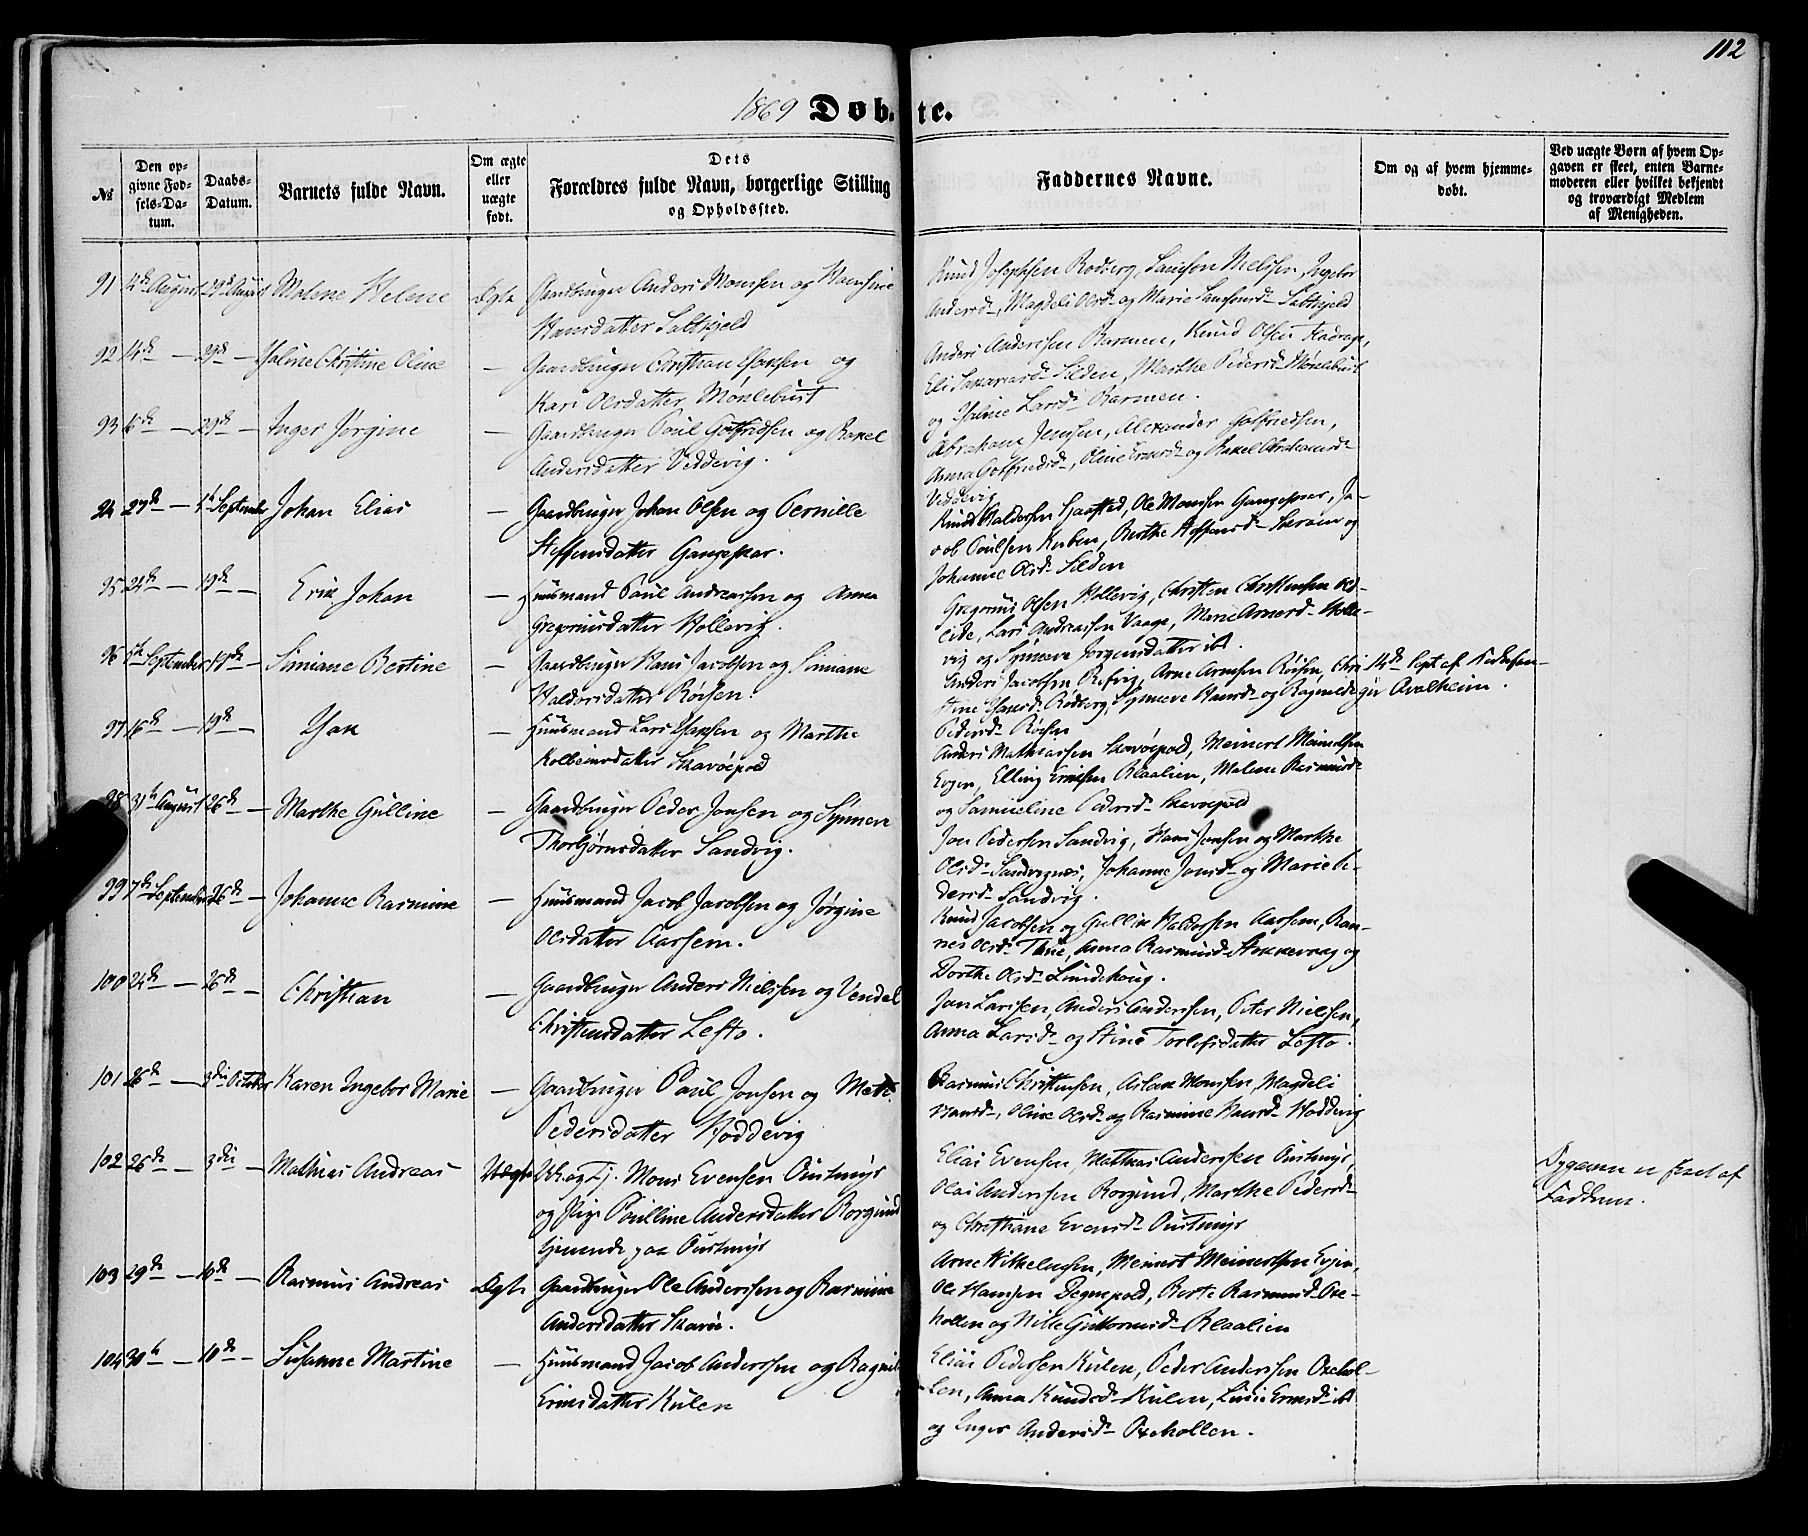 112
1869 Døbte.
№
Den opgivne Fødsels-Datum.
Daabs-Datum.
Barnets fulde Navn.
Om ægte eller uægte født.
Dets Forældres fulde Navn, borgerlige Stilling og Opholdssted.
Faddernes Navne.
Om og af hvem hjemmedøbt.
Ved uægte Børn af hvem Opgaven er skeet, enten Barnemoderen eller hvilket bekjendt og troværdigt Medlem af Menigheden.
91 12te August 29de August Malene Helene Ægte Gaardbruger Anders Monsen og Hansine
Hansdatter Saltkjeld
Knud Josephsen Rødberg, Samson Nielsen, Ingebor
Andersd-, Magdeli Olsd- og Marie Samsonsd- Saltkjeld
92 14de — 29de — Jaline Christine Oline — Gaardbruger Christian Isaksen og
Kari Olsdatter Mønlebust
Anders Andersen Barmen, Knud Olsen
Eli Silden, Marthe Pedersd- Mønlebust
og Larsd- Barmen.
93 16de — 29de — Inger Jørgine — Gaardbruger Paul Gotfridsen og Rakel
Andersdatter Veddevig.
Abraham Jensen, Alexander Gotfriedsen,
Anna Gotfriedsd-, Oline og Rakel Abrahamsd-
Veddevig
94 27de — 5te September Johan Elias — Gaardbruger Johan Olsen og Pernille
Steffensdatter Gangeskar.
Knud Baldersen Hjorstad, Ole Monsen Gangeskar, Ja-
cob Poulsen Kuben, Berthe Steffensd- og
Johanne Olsd- Silden
95 24de — 19de — Erik Johan — Huusmand Paul Andreassen og Anna
Gregoriusdatter Hollevig.
Gregorius Olsen Hollevig, Christen Christensen Ød-
eide, Lars Andreassen Vaage, Marie Arnesd- Holle-
vig og Synneve Jørgensdatter ibd.
96 5te September 19de Simiane Bertine — Gaardbruger Hans Jacobsen og Simiane
Haldorsdatter Røisen.
Anders Jacobsen Refvig, Arne Arnesen Røisen, Chri-
stine Isaksd- Rødberg, Synneve Hansd- og Ragnilde
Pedersd- Røisen
14de Sept af
Avalheim.
97 16de — 19de — Isak — Huusmand Lars Isaksen og Marthe
Kolbeinsdatter Skavøepold
Anders Mathiassen Skavøepold, Meinert Meinertsen
Evjen, Elling Eriksen Blaalien, Malene Rasmusd-
og Samueline Pedersd- Skavøepold
98 31te August 26de — Marthe Gulline — Gaardbruger Peder Jonsen og Synneve
Thorbjørnsdatter Sandvig.
Jon Pedersen Sandvig, Hans Jensen og Marthe
Olsd- Sandvignæs, Johanne Jonsd- og Marie Pe-
dersd- Sandvig.
99 7de September 26de — Johanne Rasmine — Huusmand Jacob Jacobsen og Jørgine
Olsdatter Aarsem.
Knud Jacobsen og Gulleik Haldorsen Aarsem, Ran-
nei Olsd- Thue, Anna Rasmusd- Stokkevaag og
Dorthe Olsd- Lundehoug.
100 24de — 26de — Christian — Gaardbruger Anders Nielsen og Vendel
Christensdatter Lefto.
Jon Larssen, Anders Andersen, Peter Nielsen,
Anna Larsd- og Stine Torlefsdatter Lefto.
101 26de — 3die October Karen Ingebor Marie — Gaardbruger Paul Jonsen og Mette
Pedersdatter Hoddevig
Rasmus Christensen, Aslak Monsen, Magdeli
Hansd-, Oline Olsd- og Rasmine Hansd- Hoddevig
102 26de — 3die — Mathias Andreas Uægte Mons Evensen Oustmyr
og Pige Paulline Andersdatter Borgund
tjenende paa Oustmyr
Elias Evensen, Mathias Andersen Oustmyr,
Olai Andersen Borgund, Marthe Pedersd-
og Christiane Evensd- Oustmyr
Opgaven er skeet af
Fadderen.
103 29de — 10de — Rasmus Andreas Ægte Gaardbruger Ole Andersen og Rasmine
Andersdatter Skavøe.
Arne Vilhelmsen, Meinert Meinertsen Evjen,
Ole Hansen Degnepold, Berte Rasmusd- Oxe-
hollen og Nille Guttormsd- Blaalien
104 30te — 10de — Susanne Martine — Huusmand Jacob Andersen og Ragnild
Eriksdatter Kulen
Elias Pedersen Kulen, Peder Andersen Oxehol-
len, Anna Knudsd- Kulen, Lisie Eriksd- ibd
og Inger Andersd- Oxehollen.